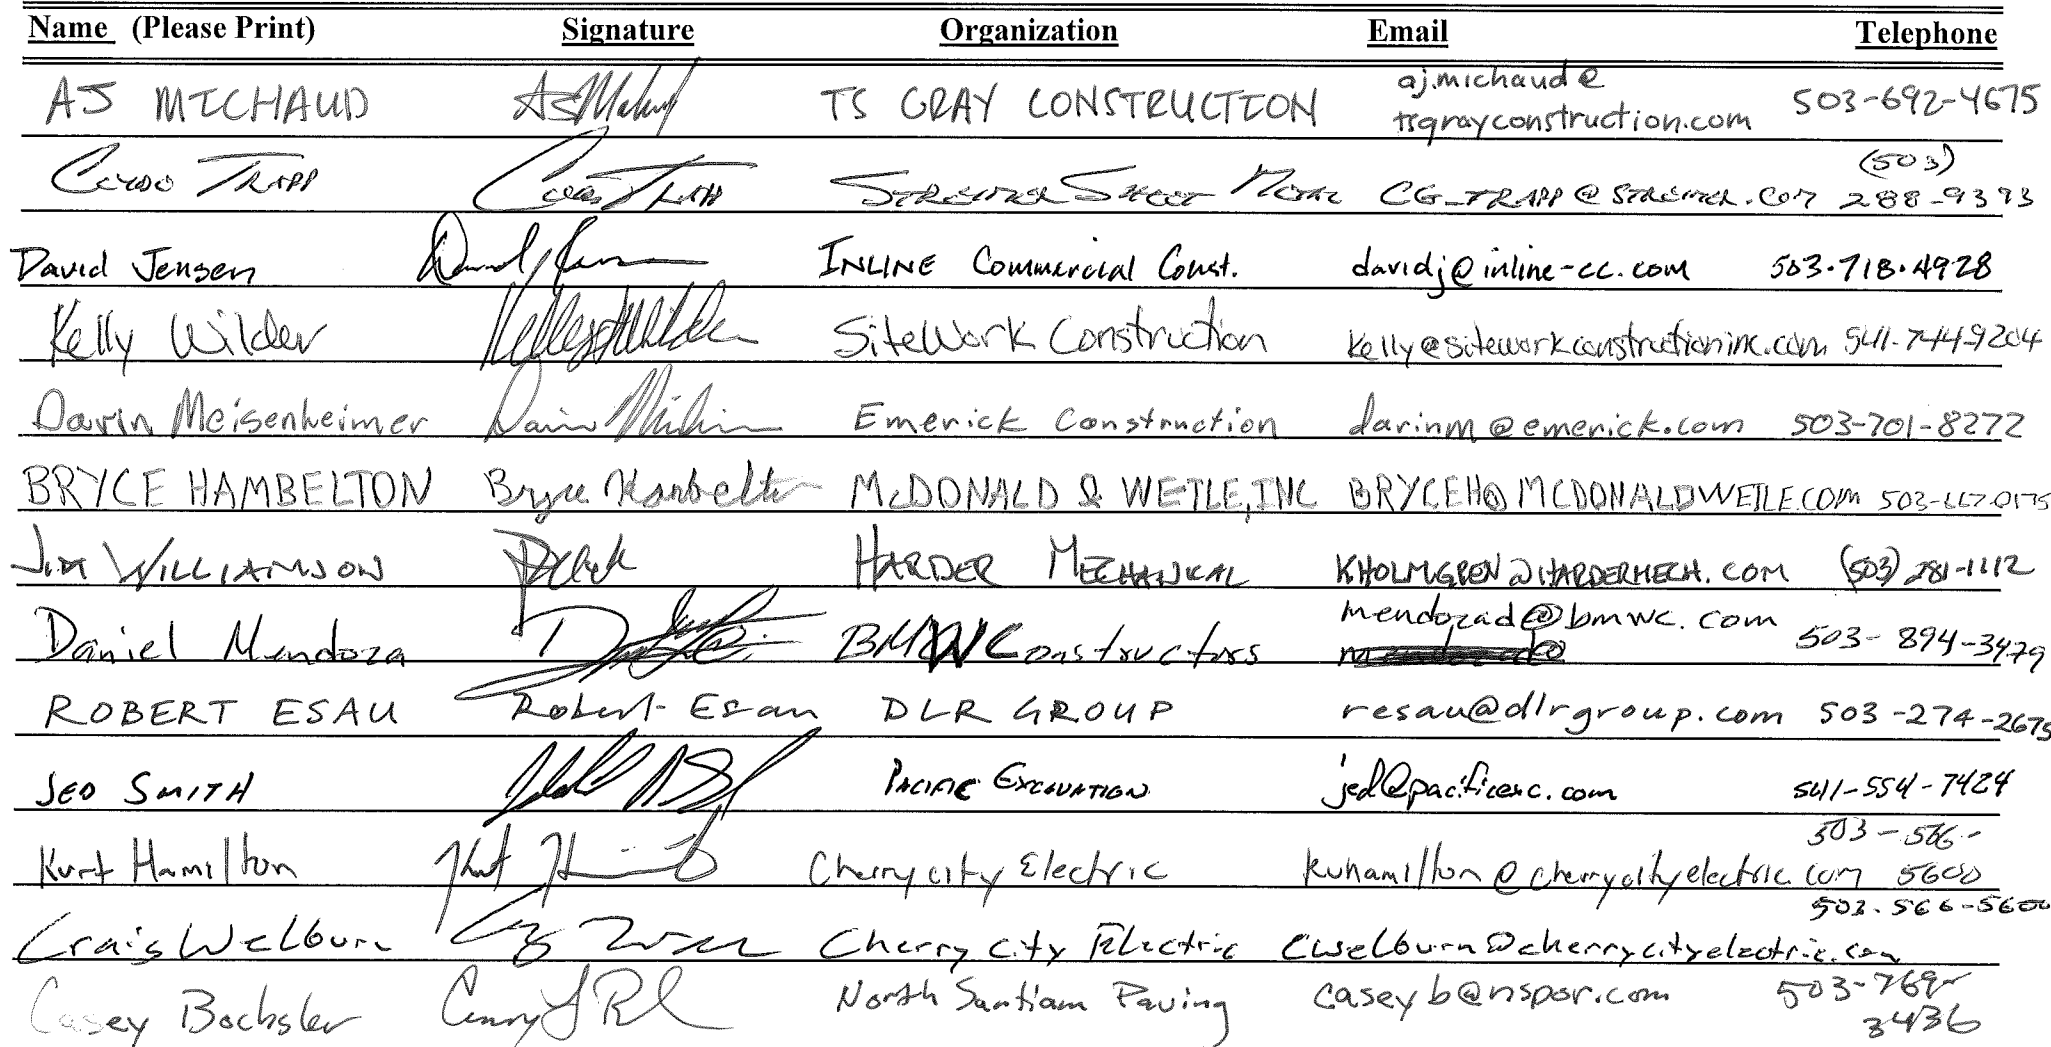 Name (Please Print) Signature Organization Email Telephone
AJ MICHAUD TS GRAY CONSTRUCTION aj.michaud@ tsgrayconstruction.com 503-692-4675
TRAPP STREIMER SHEET METAL CG_TRAPP@STREIMER.COM (503) 288-9393
David Jensen INLINE Commercial Const. davidj@inline-cc.com 503.718.4928
Kelly Wilder SiteWork Construction kelly@siteworkconstructioninc.com 541-744-9204
Darin Meisenheimer Emerick Construction darinm@emerick.com 503-701-8272
BRYCE HAMBELTON Bryce Hambelton McDONALD & WETLE, INC BRYCEH@MCDONALDWETLE.COM 503-667-0175
JIM WILLIAMSON HARDER MECHANICAL KHOLMGREN@HARDERMECH.COM (503) 281-1112
Daniel Mendoza BMWC Constructors mendozad@bmwc.com 503-894-3479
ROBERT ESAU Robert Esau DLR GROUP resau@dlrgroup.com 503-274-2675
JED SMITH PACIFIC EXCAVATION jed@pacificexc.com 541-554-7424
Kurt Hamilton Cherry city Electric kuhamilton@cherrycityelectric.com 503-566-5600
Craig Welburn Cherry City Electric cwelburn@cherrycityelectric.com 503.566-5600
Casey Bochsler North Santiam Paving caseyb@nspor.com 503-769-3436